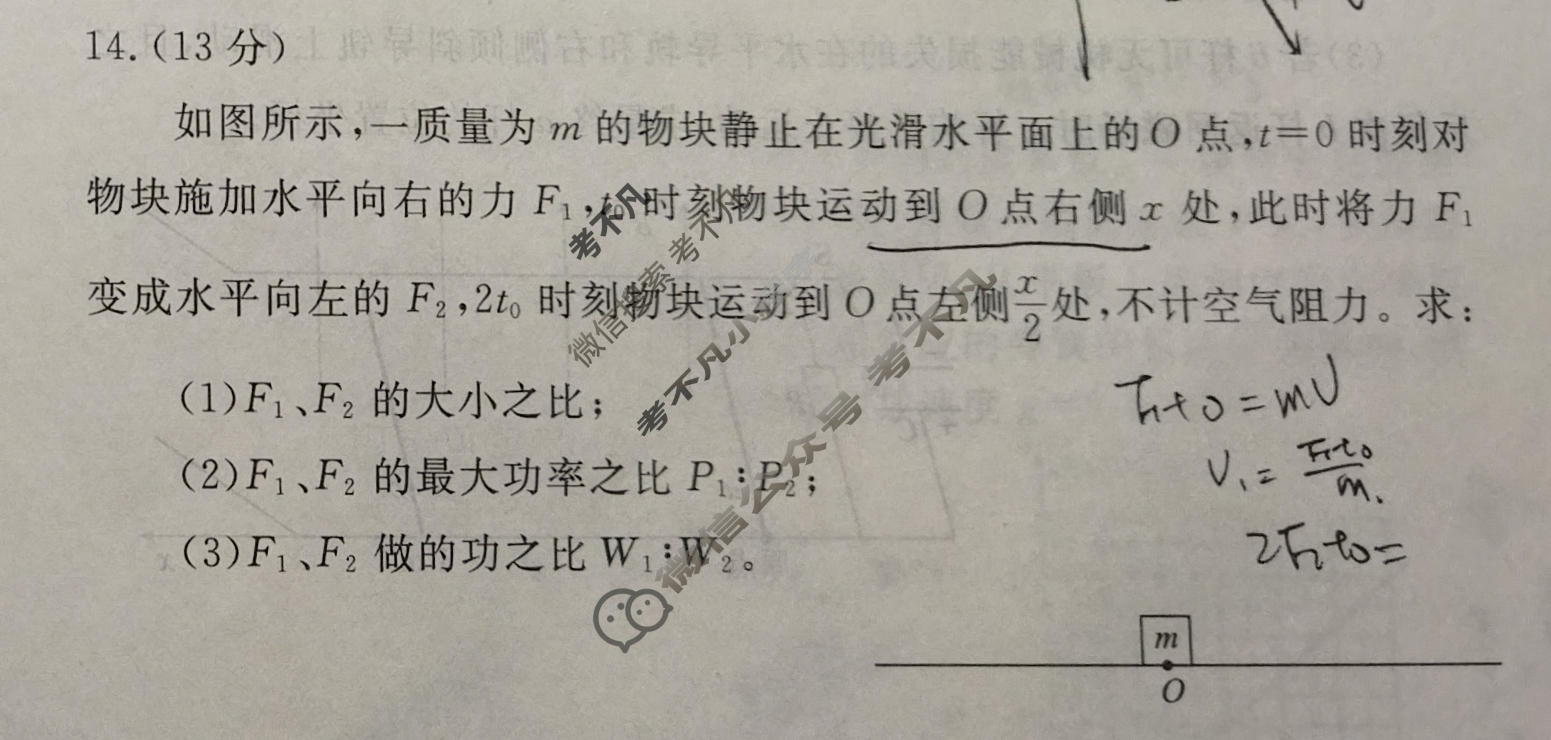 14.(13分)
如图所示,一质量为 m 的物块静止在光滑水平面上的O点,t=0时刻对
物块施加水平向右的力 F₁,t₀时刻物块运动到 O 点右侧 x 处,此时将力 F₁
变成水平向左的 F₂,2t₀ 时刻物块运动到 O 点左侧x/2处,不计空气阻力。求:
(1)F₁、F₂ 的大小之比;
(2)F₁、F₂ 的最大功率之比 P₁:P₂;
(3)F₁、F₂ 做的功之比 W₁:W₂。
F₁t₀=mV
V₁=F₁t₀/m.
2F₂t₀=
m
O
考不凡
微信搜索 考不凡
考不凡小
微信公众号 考不凡